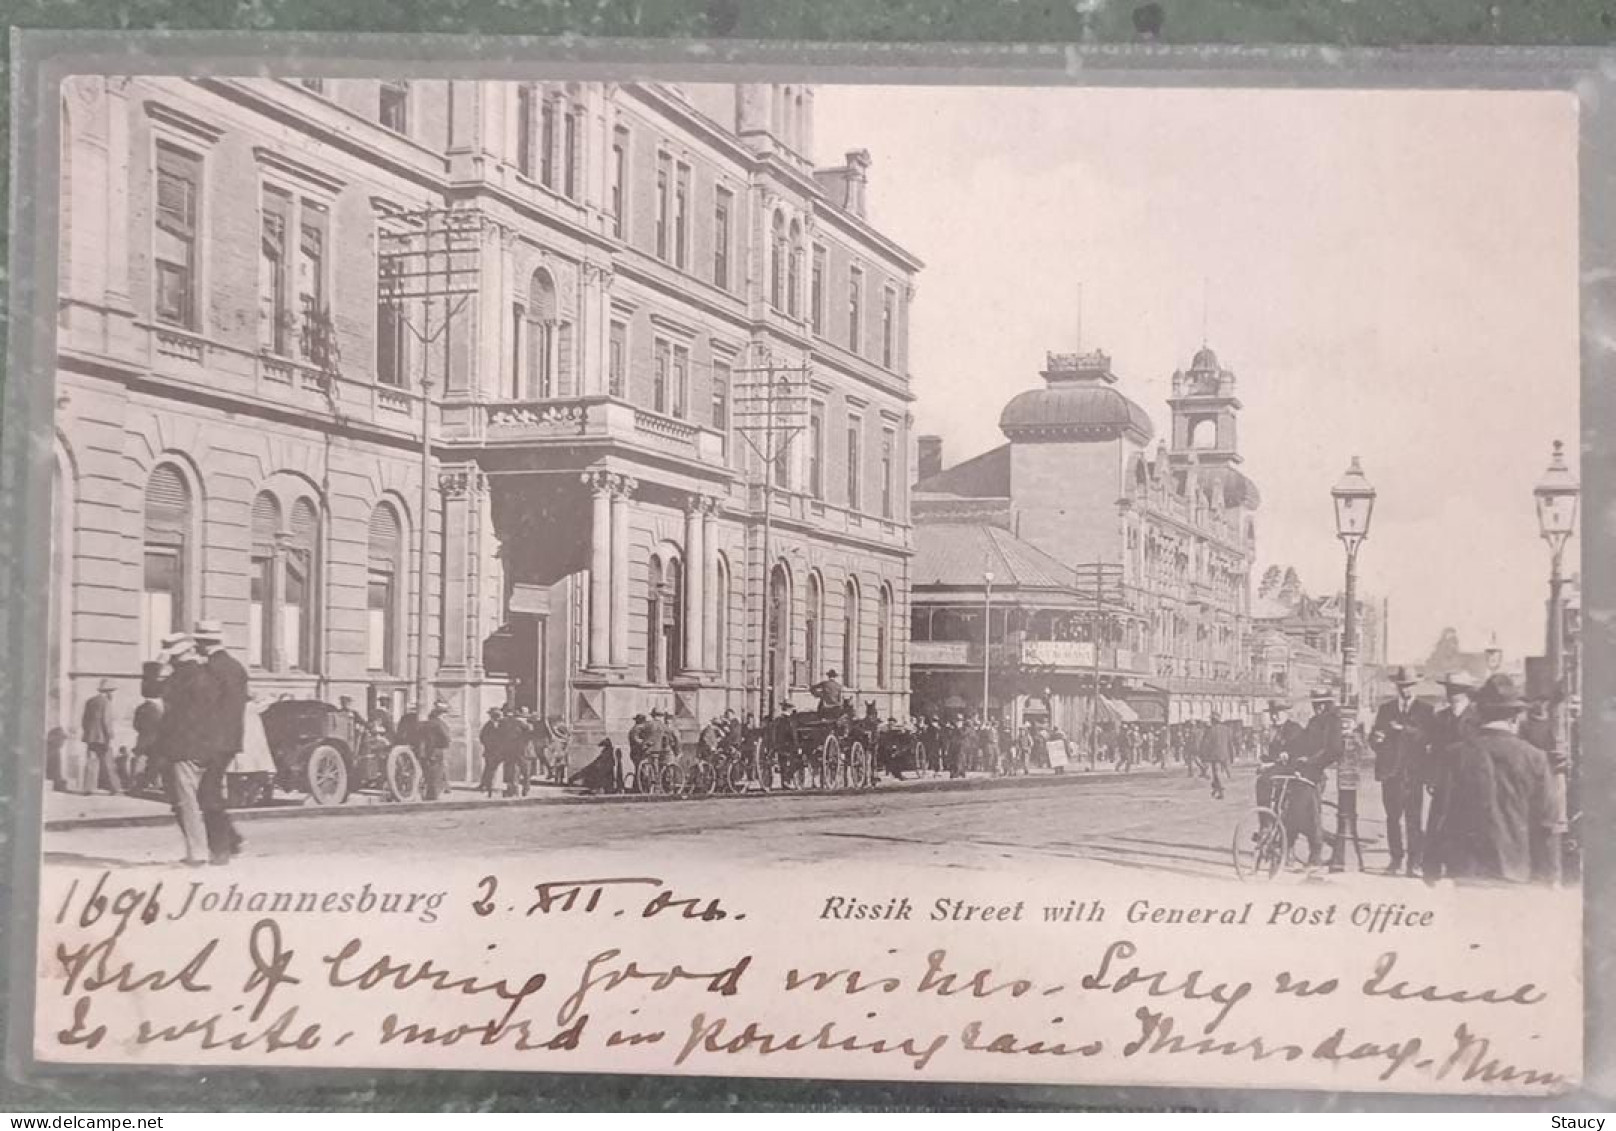 1696 Johannesburg 2. XII. 04. Rissik Street with General Post Office
Best of loving good wishes. Sorry no time
to write, moved in pouring rain Thursday.
Staucy